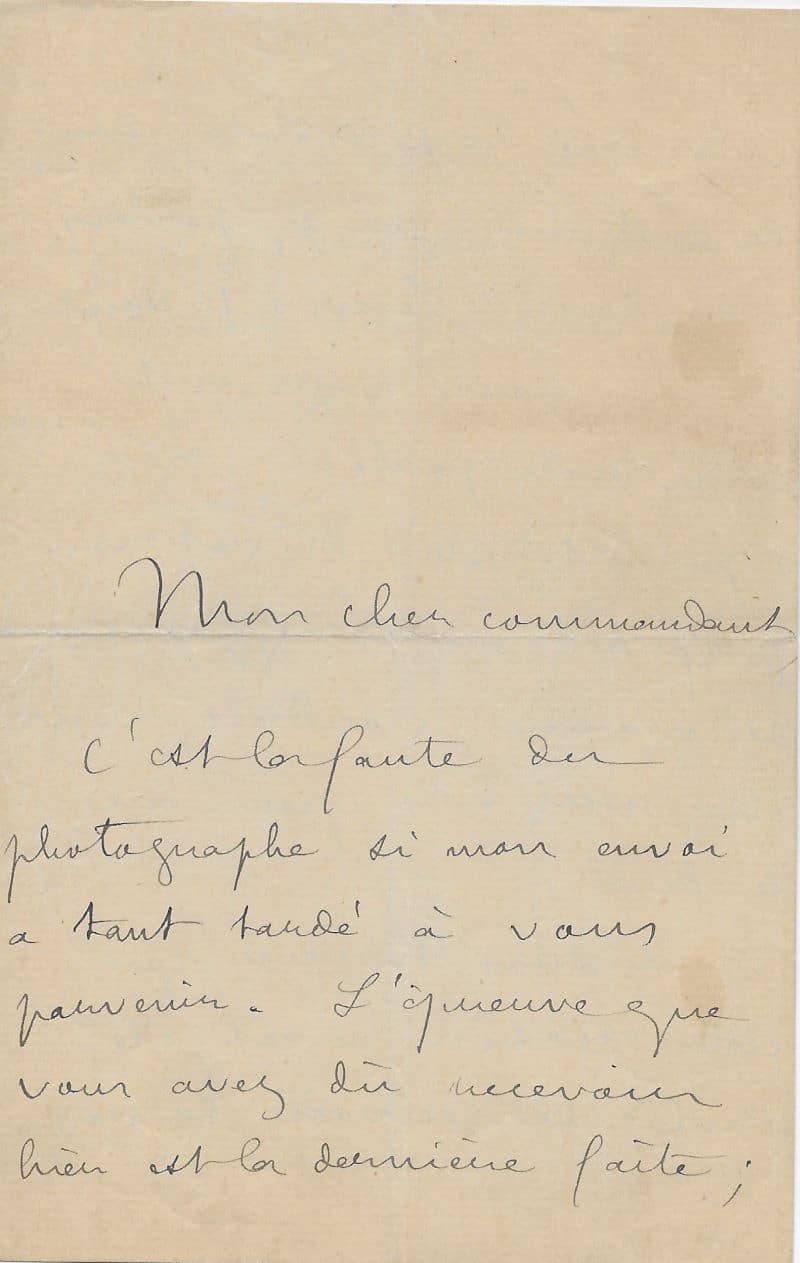 Mon cher commandant
C'est la faute du
photographe si mon envoi
a tant tardé à vous
parvenir. L'épreuve que
vous avez dû recevoir
hier est la dernière faite ;